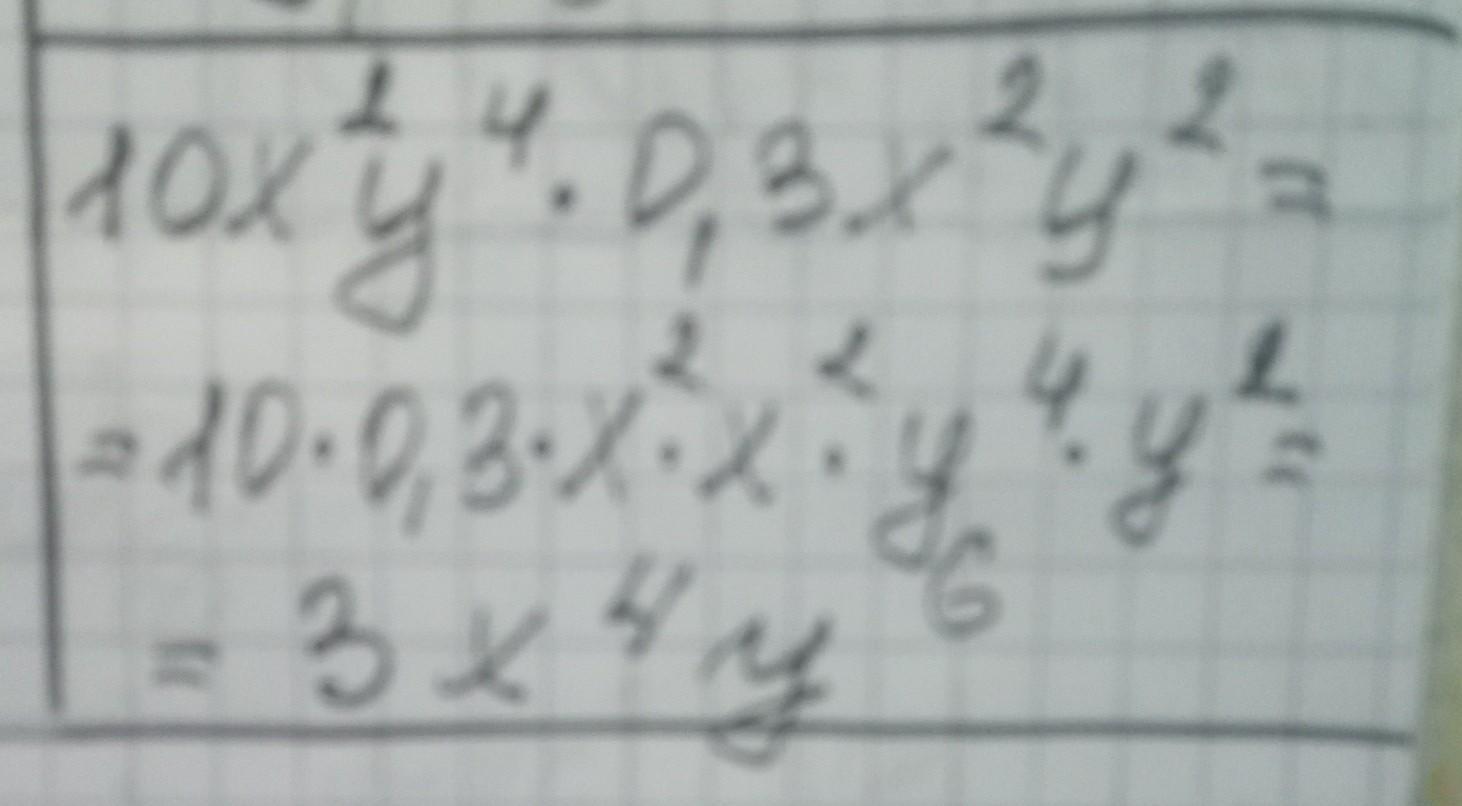 10x²y⁴ · 0,3x²y² =
= 10 · 0,3 · x² · x² · y⁴ · y² =
= 3x⁴y⁶